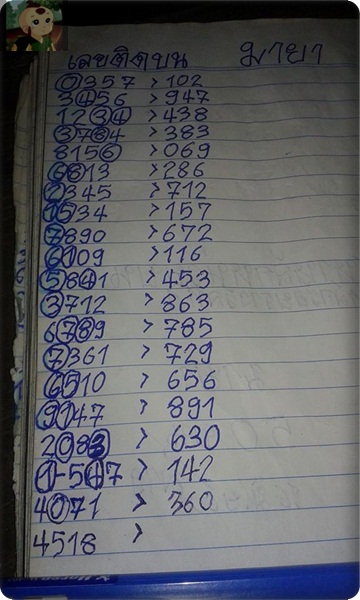 เลขติดบน มายา
0357 > 102
3456 > 947
1234 > 438
3784 > 383
8156 > 069
6813 > 286
2345 > 712
1534 > 157
7890 > 672
6109 > 116
5841 > 453
3712 > 863
6789 > 785
7361 > 729
6510 > 656
9147 > 891
2083 > 630
1-547 > 142
4071 > 360
4518 >